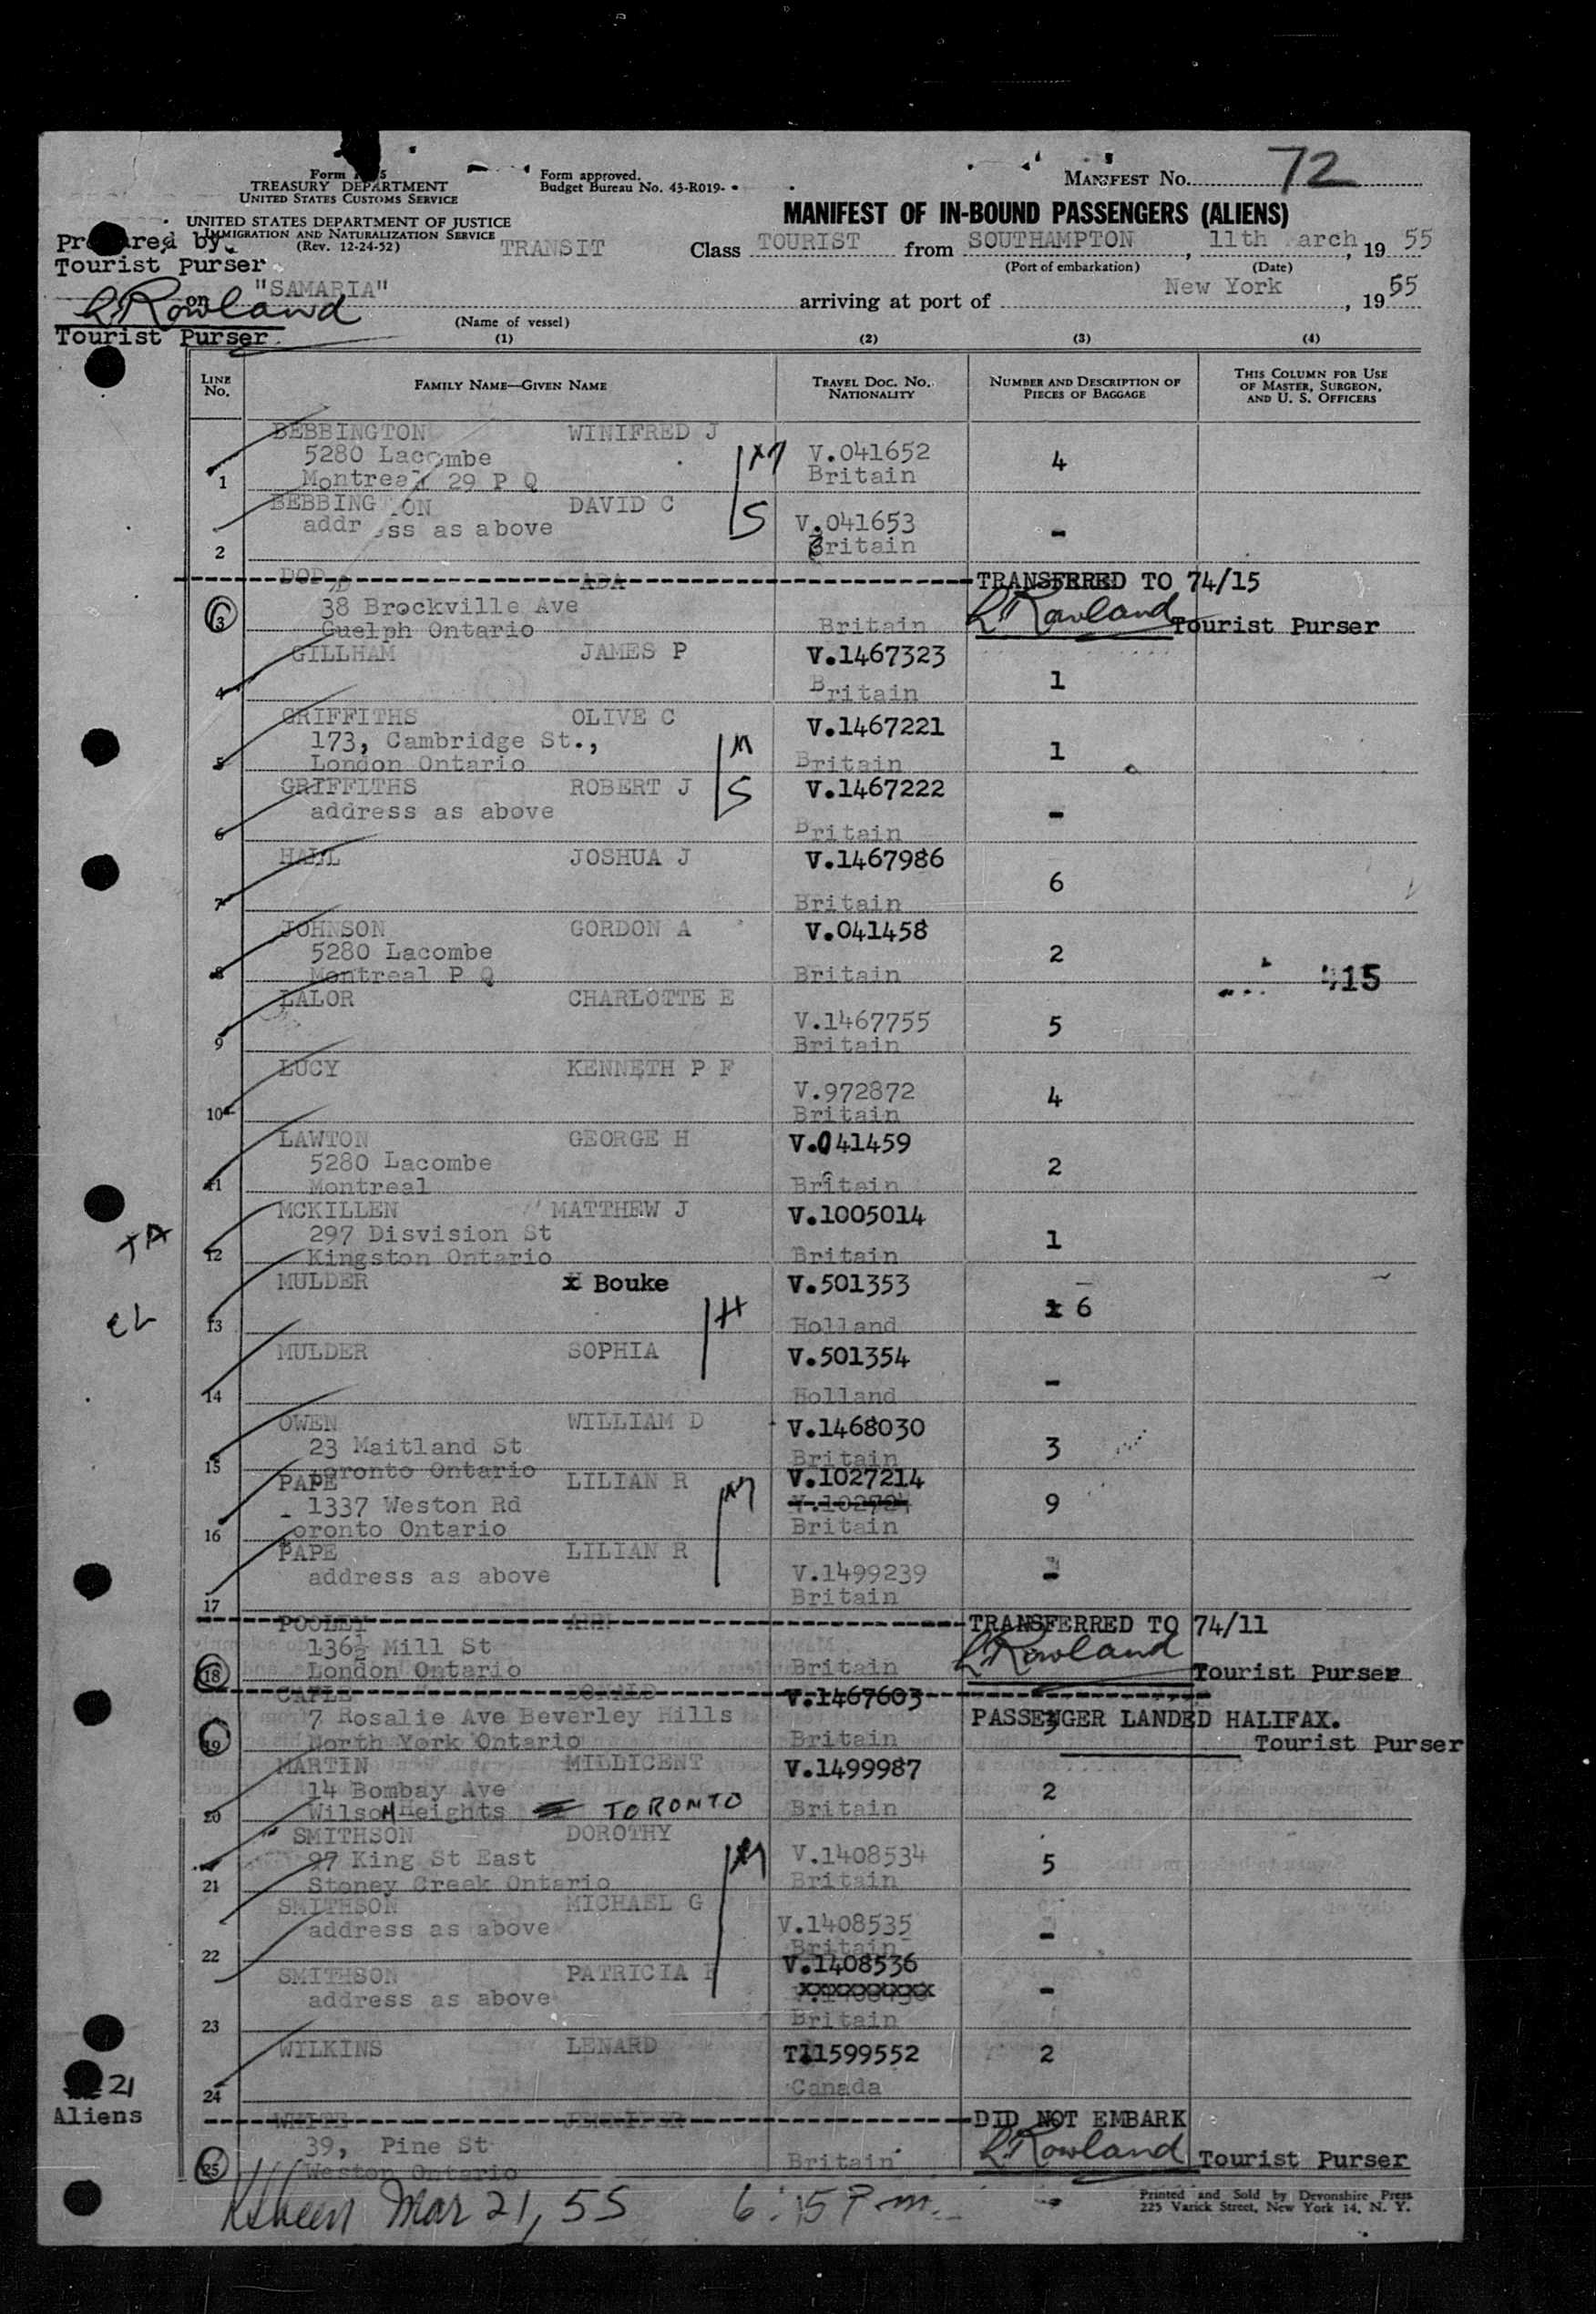 Form I-415
TREASURY DEPARTMENT
UNITED STATES CUSTOMS SERVICE
Form approved.
Budget Bureau No. 43-R019-
MANIFEST No. 72
UNITED STATES DEPARTMENT OF JUSTICE
IMMIGRATION AND NATURALIZATION SERVICE
(Rev. 12-24-52)
MANIFEST OF IN-BOUND PASSENGERS (ALIENS)
Prepared by
Tourist Purser
TRANSIT Class TOURIST from SOUTHAMPTON, 11th March, 19 55
(Port of embarkation) (Date)
on "SAMARIA" arriving at port of New York, 19 55
L Rowland
Tourist Purser
(Name of vessel)
(1) (2) (3) (4)
LINE No. FAMILY NAME—GIVEN NAME TRAVEL DOC. NO. NATIONALITY NUMBER AND DESCRIPTION OF PIECES OF BAGGAGE THIS COLUMN FOR USE OF MASTER, SURGEON, AND U. S. OFFICERS
BEBBINGTON WINIFRED J
5280 Lacombe V.041652 4
1 Montreal 29 P Q Britain
BEBBINGTON DAVID C
address as above S V.041653 -
2 Britain
DODD ADA TRANSFERRED TO 74/15
38 Brockville Ave L Rowland
3 Guelph Ontario Britain Tourist Purser
GILLHAM JAMES P V.1467323
4 Britain 1
GRIFFITHS OLIVE C V.1467221
173, Cambridge St., M 1
5 London Ontario Britain
GRIFFITHS ROBERT J S V.1467222
address as above -
6 Britain
HALL JOSHUA J V.1467986
6
7 Britain
JOHNSON GORDON A V.041458
5280 Lacombe 2
8 Montreal P Q Britain 415
LALOR CHARLOTTE E
V.1467755 5
9 Britain
LUCY KENNETH P F
V.972872 4
10 Britain
LAWTON GEORGE H V.041459
5280 Lacombe 2
11 Montreal Britain
MCKILLEN MATTHEW J V.1005014
297 Disvision St 1
12 Kingston Ontario Britain
MULDER x Bouke V.501353
x 6
13 Holland
MULDER SOPHIA V.501354
-
14 Holland
OWEN WILLIAM D V.1468030
23 Maitland St 3
15 Toronto Ontario Britain
PAPE LILIAN R V.1027214
1337 Weston Rd 9
16 Toronto Ontario Britain
PAPE LILIAN R
address as above V.1499239 -
17 Britain
POOLEY ANN TRANSFERRED TO 74/11
136½ Mill St L Rowland
18 London Ontario Britain Tourist Purser
CAPLE DONALD V.1467603
7 Rosalie Ave Beverley Hills PASSENGER LANDED HALIFAX.
19 North York Ontario Britain Tourist Purser
MARTIN MILLICENT V.1499987
14 Bombay Ave 2
20 Wilson Heights TORONTO Britain
SMITHSON DOROTHY
97 King St East M V.1408534 5
21 Stoney Creek Ontario Britain
SMITHSON MICHAEL G
address as above V.1408535 -
22 Britain
SMITHSON PATRICIA V.1408536
address as above xxxxxxxxx -
23 Britain
WILKINS LENARD T11599552 2
24 Canada
21
Aliens
WHITE JENNIFER DID NOT EMBARK
39, Pine St L Rowland Tourist Purser
25 Weston Ontario Britain
Mar 21, 55 6:15 P m.
Printed and Sold by Devonshire Press
225 Varick Street, New York 14, N. Y.